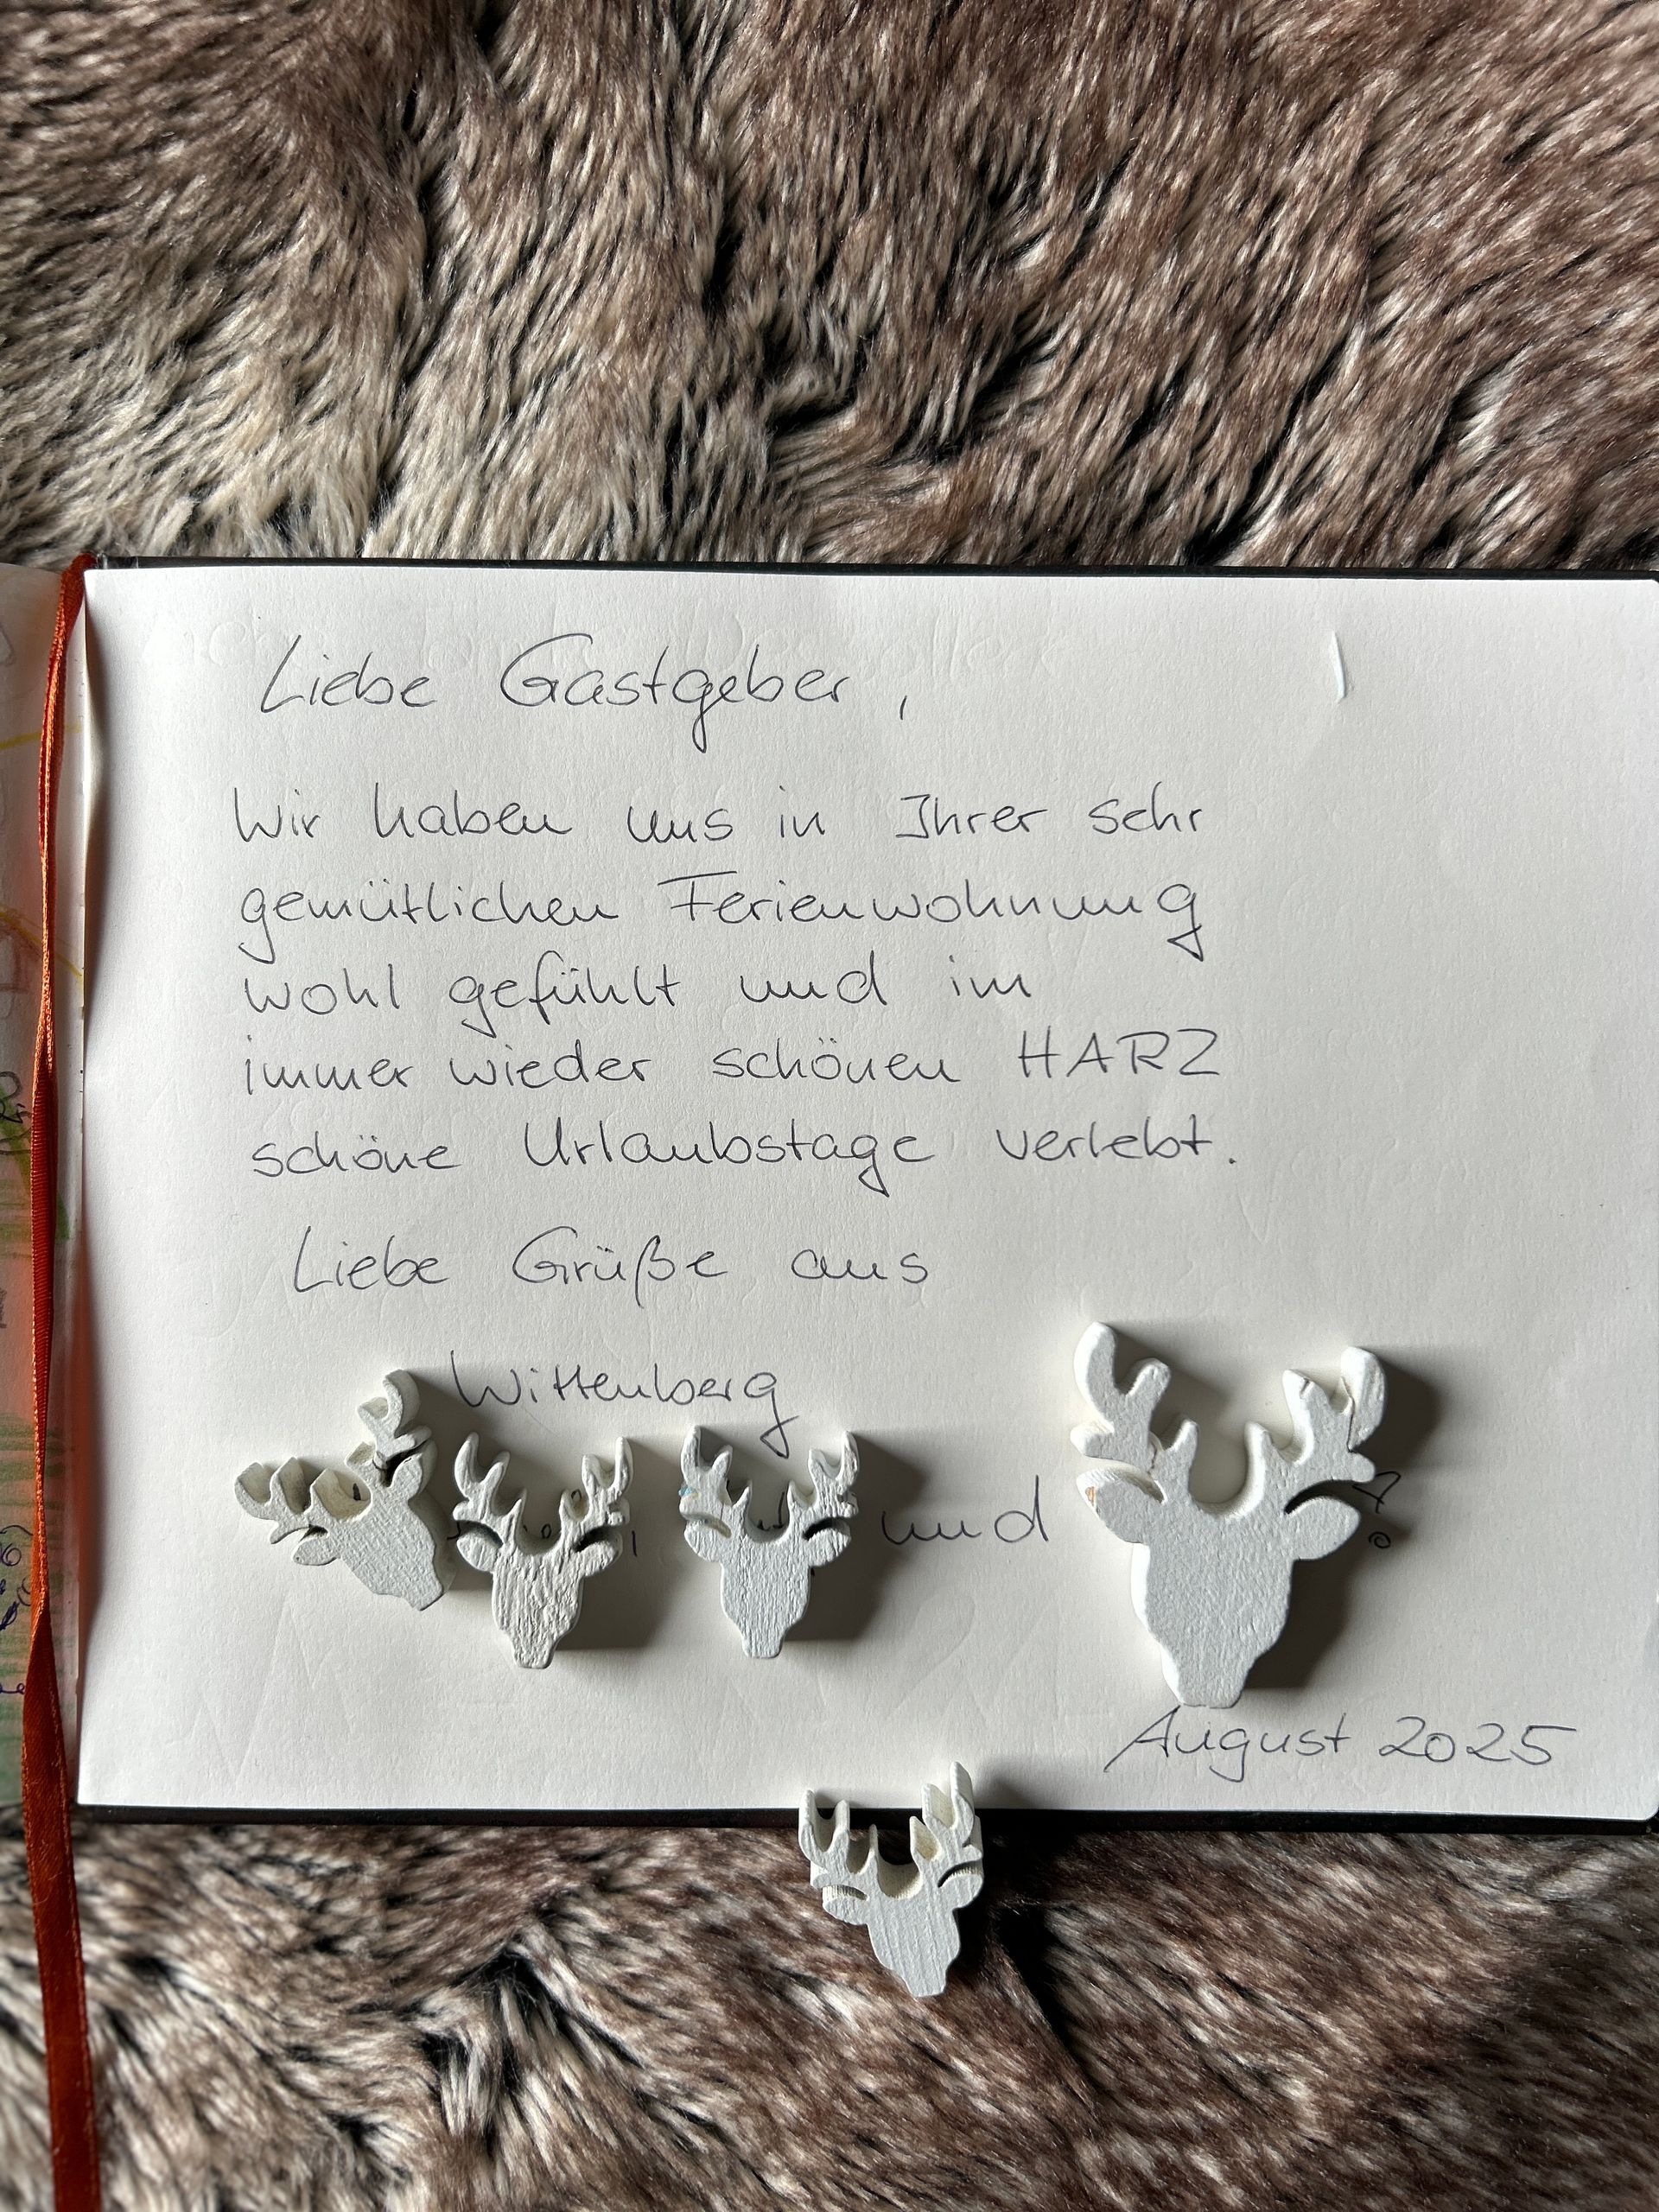 Liebe Gastgeber,
Wir haben uns in Ihrer sehr
gemütlichen Ferienwohnung
wohl gefühlt und im
immer wieder schönen HARZ
schöne Urlaubstage verlebt.
Liebe Grüße aus
Wittenberg
und
August 2025